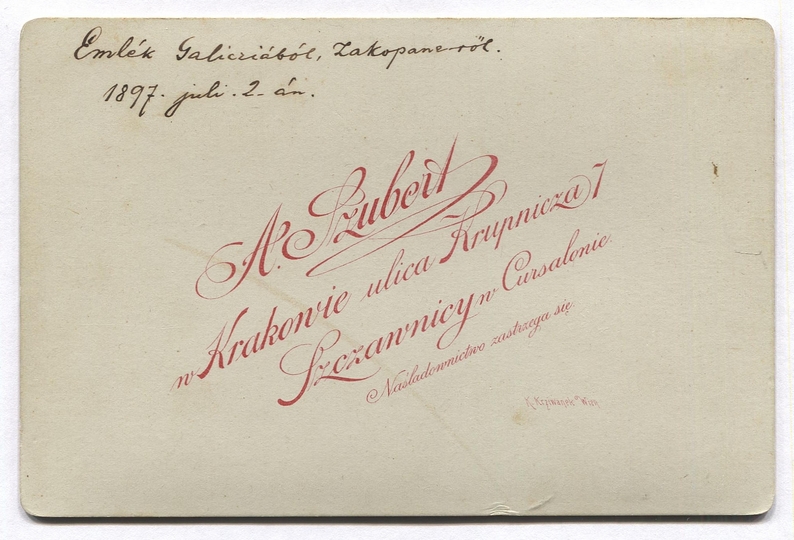 Emlék Galicziából, Zakopane-ről.
1897. juli. 2-án.
A. Szubert
w Krakowie ulica Krupnicza 7
Szczawnicy w Cursalonie.
Naśladownictwo zastrzega się
K. Krziwanek Wien